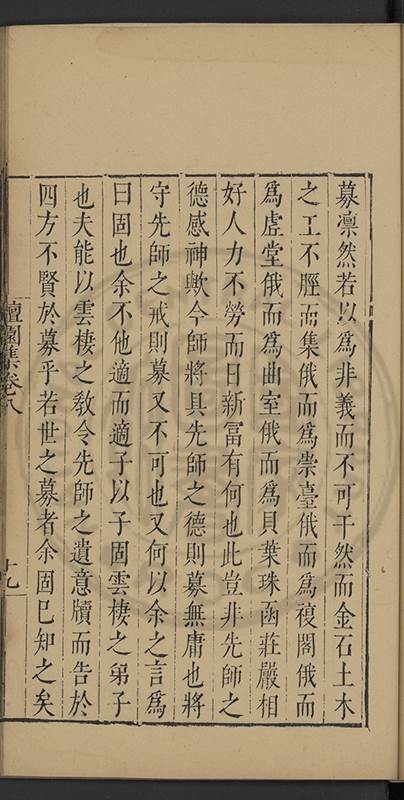 募凛然若以為非義而不可干然而金石土木
之工不脛而集俄而為崇臺俄而為複閣俄而
為虛堂俄而為曲室俄而為貝葉珠函莊嚴相
好人力不勞而日新冨有何也此豈非先師之
德感神歟今師將具先師之德則募無庸也將
守先師之戒則募又不可也又何以余之言為
曰固也余不他適而適子以子固雲棲之弟子
也夫能以雲棲之敎令先師之遺意牘而告於
四方不賢於募乎若世之募者余固已知之矣
檀園集卷八
十九